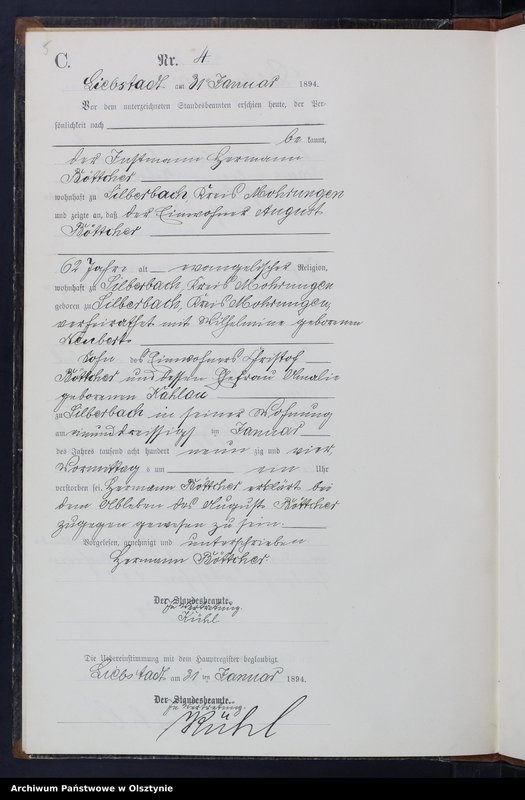 5
C.
Nr. 4
Liebstadt am 31ten Januar 1894.
Vor dem unterzeichneten Standesbeamten erschien heute, der Per-
sönlichkeit nach
be kannt,
der Instmann Hermann
Böttcher
wohnhaft zu Silberbach, Kreis Mohrungen
und zeigte an, daß der Einwohner August
Böttcher
62 Jahre alt evangelischer Religion,
wohnhaft zu Silberbach, Kreis Mohrungen
geboren zu Silberbach, Kreis Mohrungen,
verheirathet mit Wilhelmine geborenen
Sohn des Einwohners Christof
Böttcher und dessen Ehefrau Amalie
geborenen Kahlau
zu Silberbach in seiner Wohnung
am einunddreissigsten Januar
des Jahres tausend acht hundert neun zig und vier,
Vormittag s um ein Uhr
verstorben sei. Hermann Böttcher erklärt bei
dem Ableben des August Böttcher
zugegen gewesen zu sein.
Vorgelesen, genehmigt und unterschrieben
Hermann Böttcher.
Der Standesbeamte.
In Vertretung.
Kühl
Die Uebereinstimmung mit dem Hauptregister beglaubigt.
Liebstadt am 31 ten Januar 1894.
Der Standesbeamte.
In Vertretung.
Kühl
Archiwum Państwowe w Olsztynie